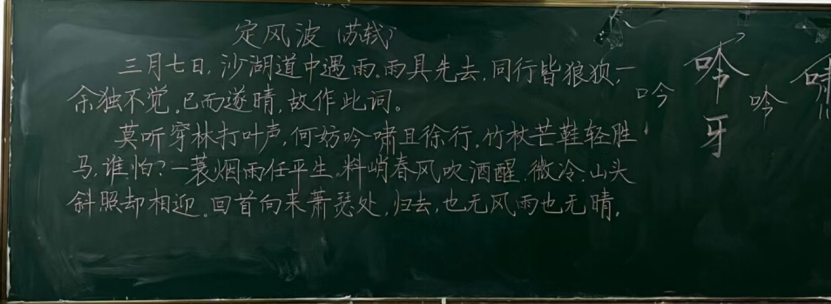 定风波 (苏轼)
三月七日,沙湖道中遇雨,雨具先去,同行皆狼狈,
余独不觉,已而遂晴,故作此词。
莫听穿林打叶声,何妨吟啸且徐行,竹杖芒鞋轻胜
马,谁怕?一蓑烟雨任平生,料峭春风吹酒醒,微冷,山头
斜照却相迎。回首向来萧瑟处,归去,也无风雨也无晴。
吟
吟
牙
吟
啸